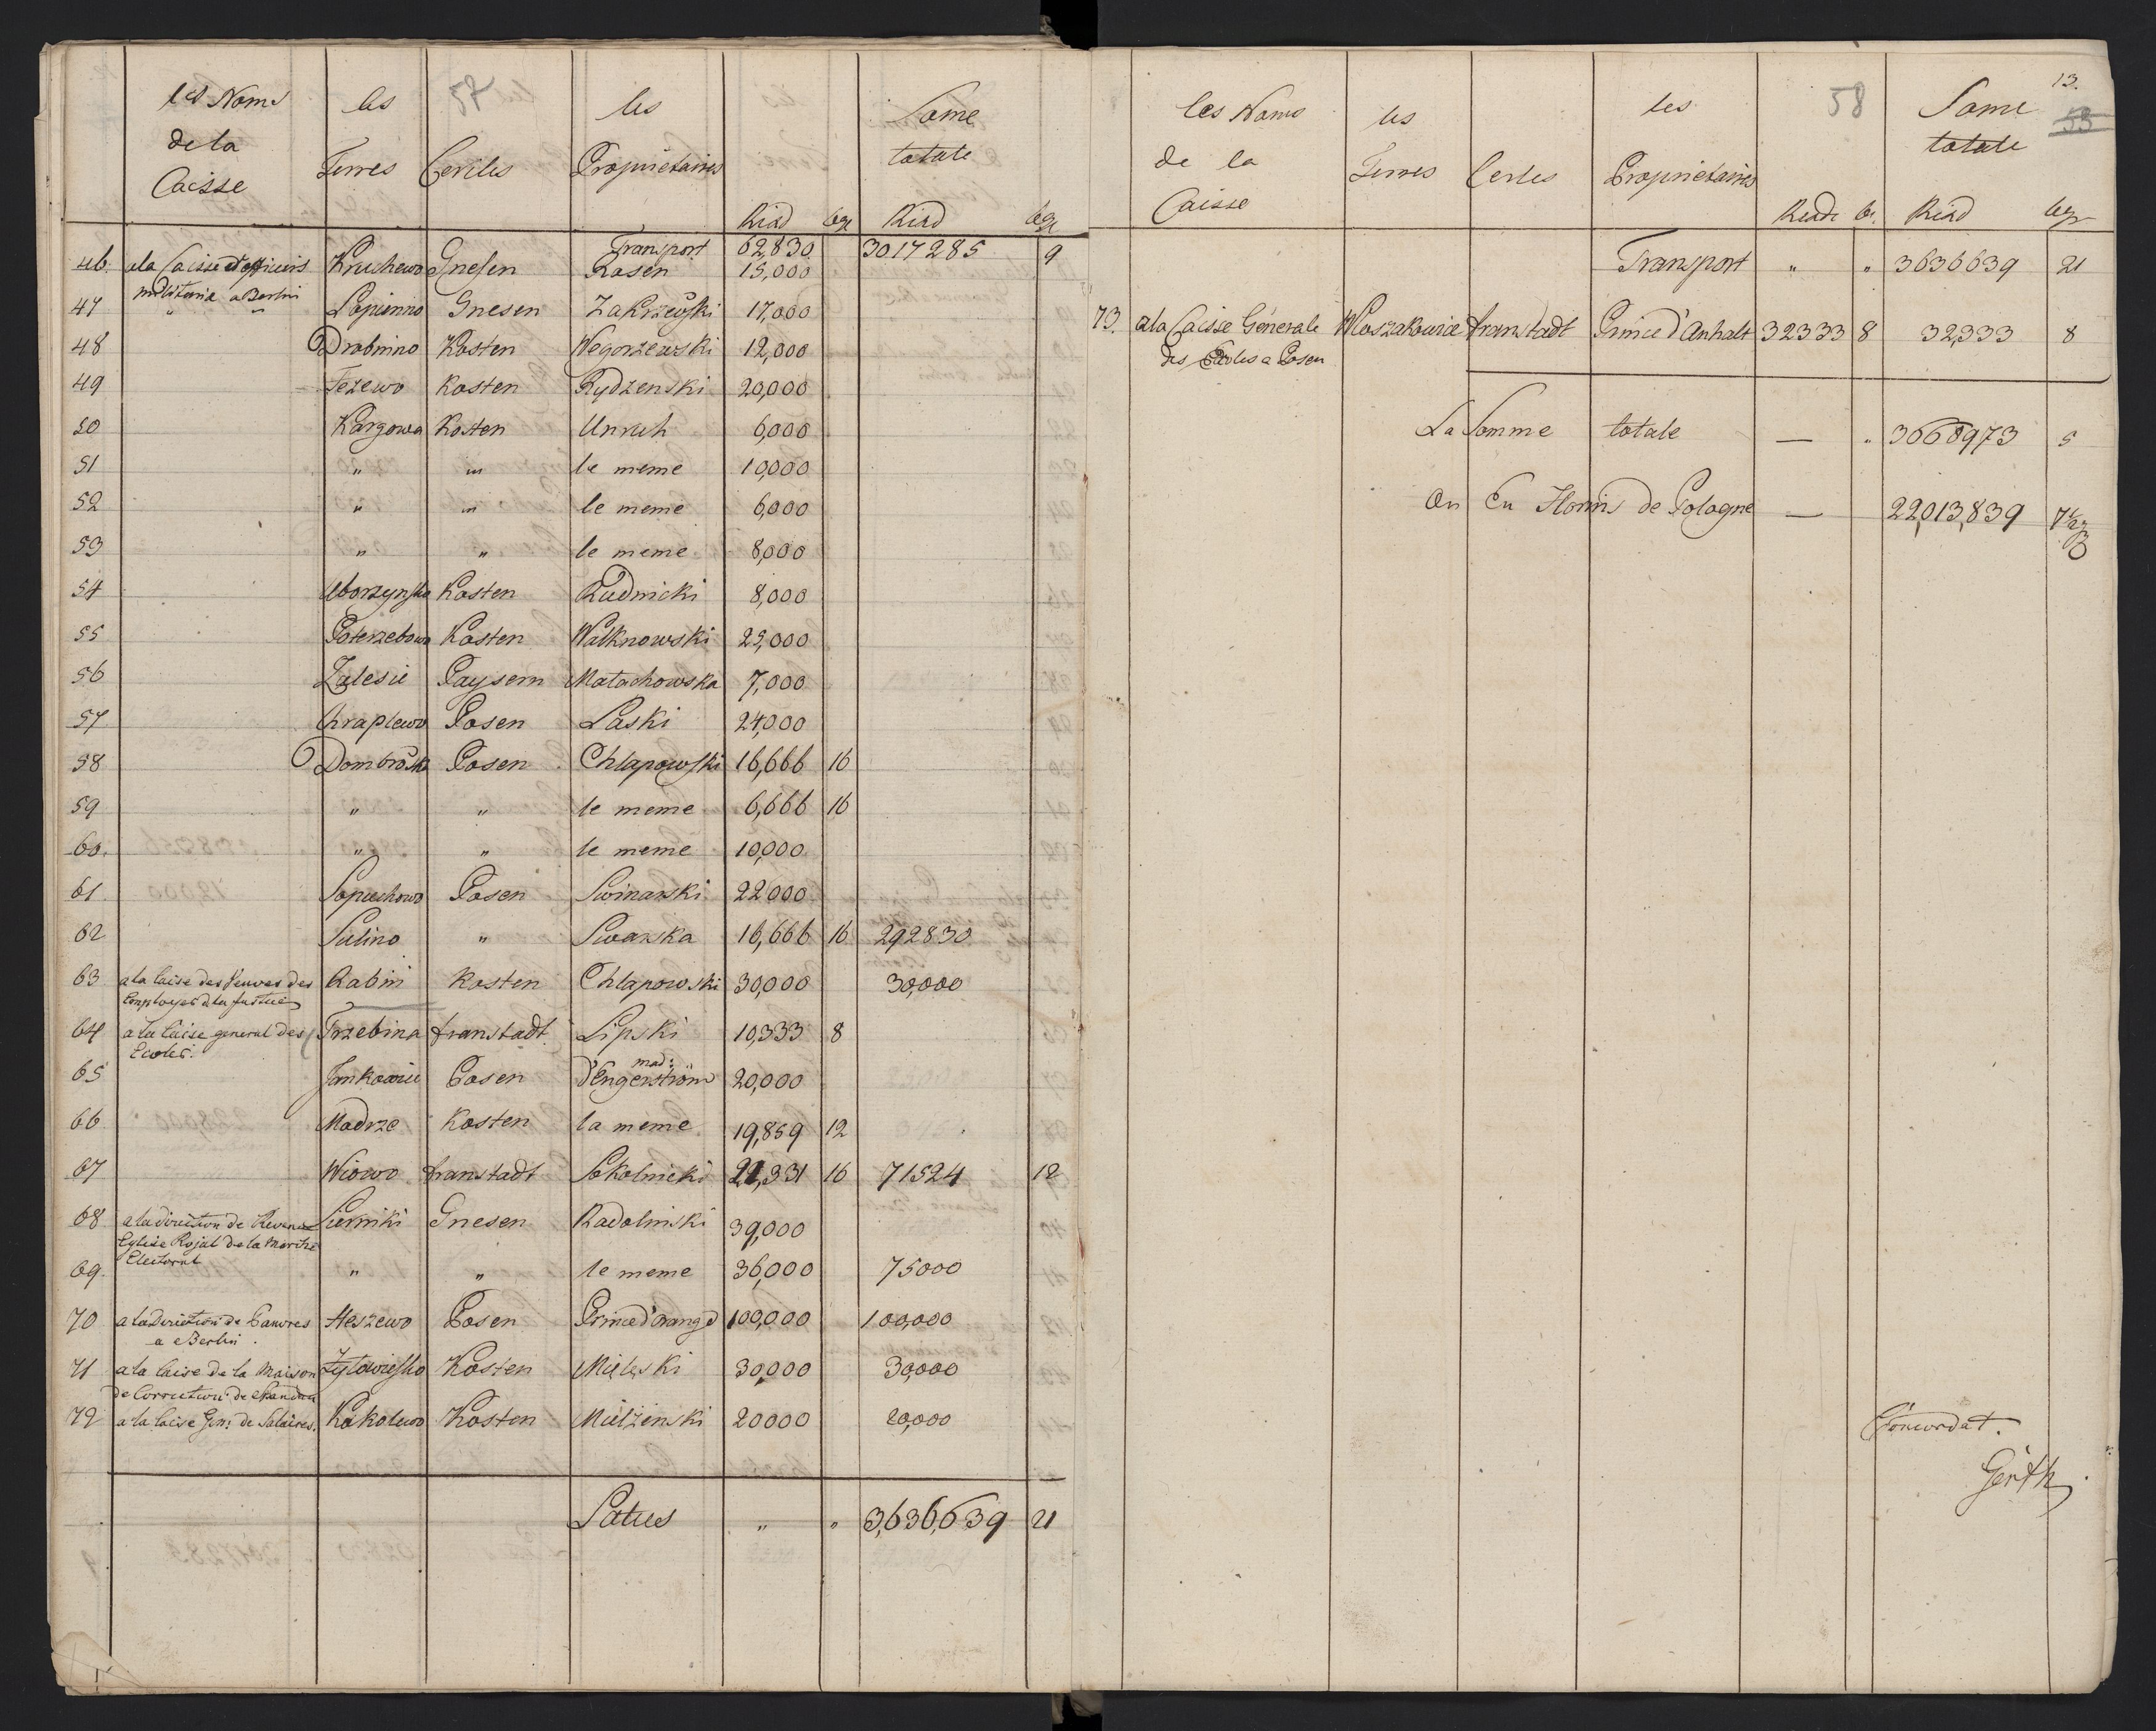 57
les Noms de la Caisse les Terres Cercles les Proprietaires Some totale
Risd bgr Risd bgr
Transport 62,830 3017285 9
46. a la Caisse d'officiers Kruchewo Gnesen Rosen 15,000
militaria a Berlin
47 " " Lopienno Gnesen Zakrzewski 17,000
48 Drobnino Kosten Wegorzewski 12,000
49 Jezewo Kosten Rydzenski 20,000
50 Kargowa Kosten Unruh 6,000
51 " " le meme 10,000
52 " " le meme 6,000
53 " " le meme 8,000
54 Kosten Rudnicki 8,000
55 Poterzebowo Kosten Walknowski 25,000
56 Zalesie Paysern Matachowska 7,000
57 Chraplewo Posen Laski 24,000
58 Dombrowka Posen Chlapowski 16,666 16
59 " " le meme 6,666 16
60. " " le meme 10,000
61 Sopuchowo Posen Swinarski 22000
62 Sulino " Swarska 16,666 16 292830
63 a la Caise des Veuves des Rabin Kosten Chlapowski 30,000 30,000
Employes de la Justice
64 a la Caise general des Trzebina franstadt Lipski 10,333 8
Ecoles.
65 Jankowice Posen mad: d'Engerström 20,000
66 Modrze Kosten la meme 19,859 12
67 Wiowo franstadt Sokolnicki 21,331 16 71524 12
68 a la direction de Revenue Sierniki Gnesen Radolinski 39,000
Eglise Rojal de la Marche
Electorat
69. " " le meme 36,000 75000
70 a la Direction de Pauvres Heszewo Posen Prince d'orange 100,000 100,000
a Berlin.
71 a la Caise de la Maison Kosten Mieleski 30,000 30,000
de Correction de Spandau
72 a la Caise Gen: de Salaires. Kakolewo Kosten Mielzinski 20000 20,000
Latus " " 3,636,639 21
58
13.
53
les Noms de la Caisse les Terres Cercles les Proprietaires Some totale
Risd b. Risd bgr
Transport " " 3636639 21
73. a la Caisse Génerale Wloszakowice franstadt Prince d'Anhalt 32333 8 32,333 8
des Ecoles a Posen
La Somme totale — " 3668973 5
Ou En Florins de Pologne — 22,013,839
Concordat.
Gerth